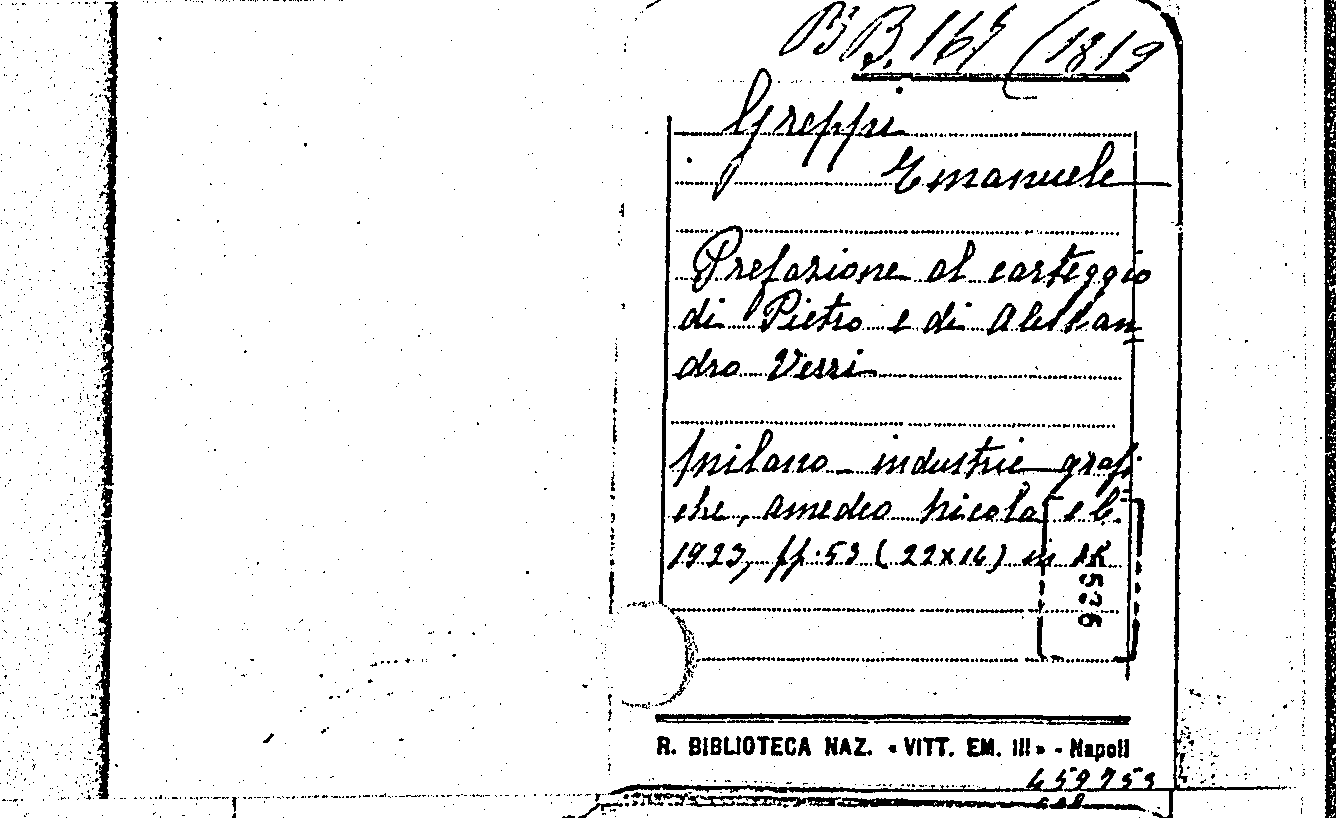 B B. 165 (1819
Greppi
Emanuele
Prefazione al carteggio
di Pietro e di Alessan
dro Verri
Milano - industrie grafi
che, Amedeo Nicola e C.
1923, pp. 53 (22x16) in
5526
R. BIBLIOTECA NAZ. « VITT. EM. III» - Napoli
459753